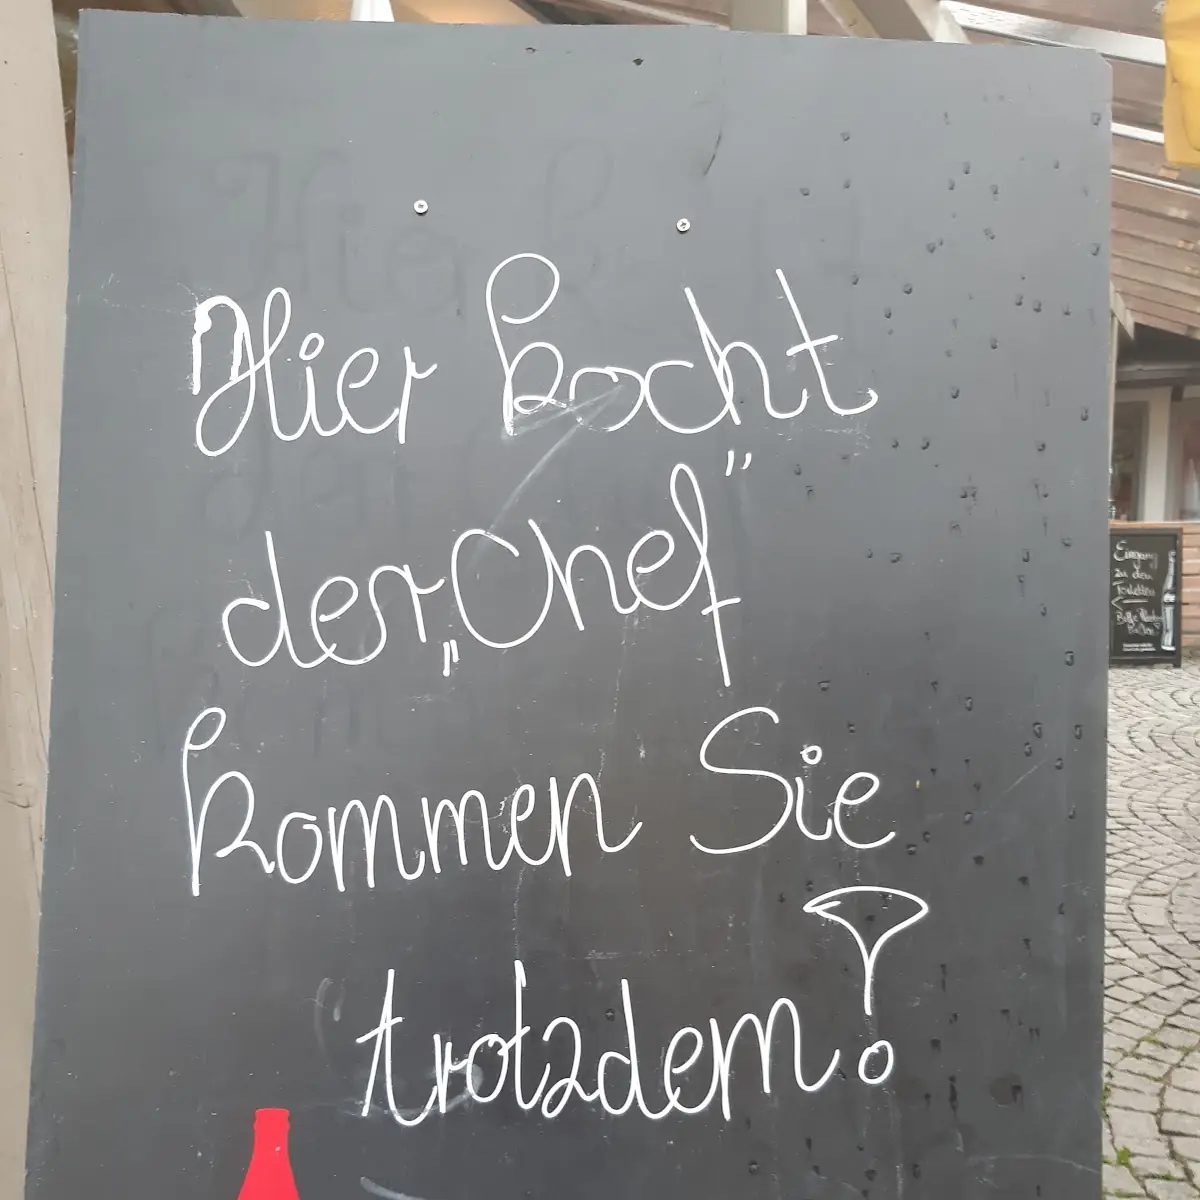 Hier kocht
der „Chef"
Kommen Sie
trotzdem!
Eingang
zu den
Toiletten